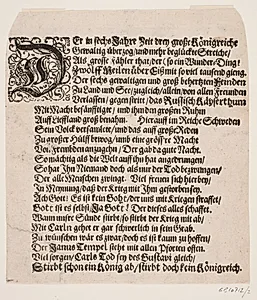 DEr in sechs Jahre Zeit drey große Königreiche
Gewaltig überzog/und mehr beglückte Streiche/
Als grosse zähler that/der (so ein Wunder-Ding!
Zwölff Meilen über Eiß mit so viel tausend gieng.
Der sechs gewaltigen und hoch beherzten Feinden
Zu Land und See/zugleich/allein/von allen Freunden
Verlassen/gegenstritt/das Russisch Käyserthum
Mit Macht bestürmte/und ihn den großen Ruhm
Auff Lieffland großbenahm. Hier auff im Reiche Schweden
Sein Volck versamlete/und das auff große Reden
Zu großer Hülff bewog/und eine größre Macht
Von Fremden anzugehn/Der gab da gute Nacht.
So mächtig als die Welt auff ihn hat angedrungen/
So hat Ihn Niemand doch als nur der Tod bezwungen/
Der alle Menschen zwingt. Viel freuen sich hierbey/
In Meynung/daß der Krieg mit Ihm gestorben sey.
Ach Gott! Es ist kein Gott/der uns mit Kriegen straffet/
Gott ist es selbst/Ja Gott! Der dieses alles schaffet.
Wann unsre Sünde stirbt/so stirbt der Krieg mit ab/
Mit Carln gehet er gar schwerlich in sein Grab.
Zu wünschen wär es zwar/doch es ist kaum zu hoffen/
Der Janus Tempel steht mit allen Pforten offen.
Viel sorgen/Carls Tod sey des Gustavi gleich/
Stirbt schon ein König ab/stirbt doch kein Königreich.